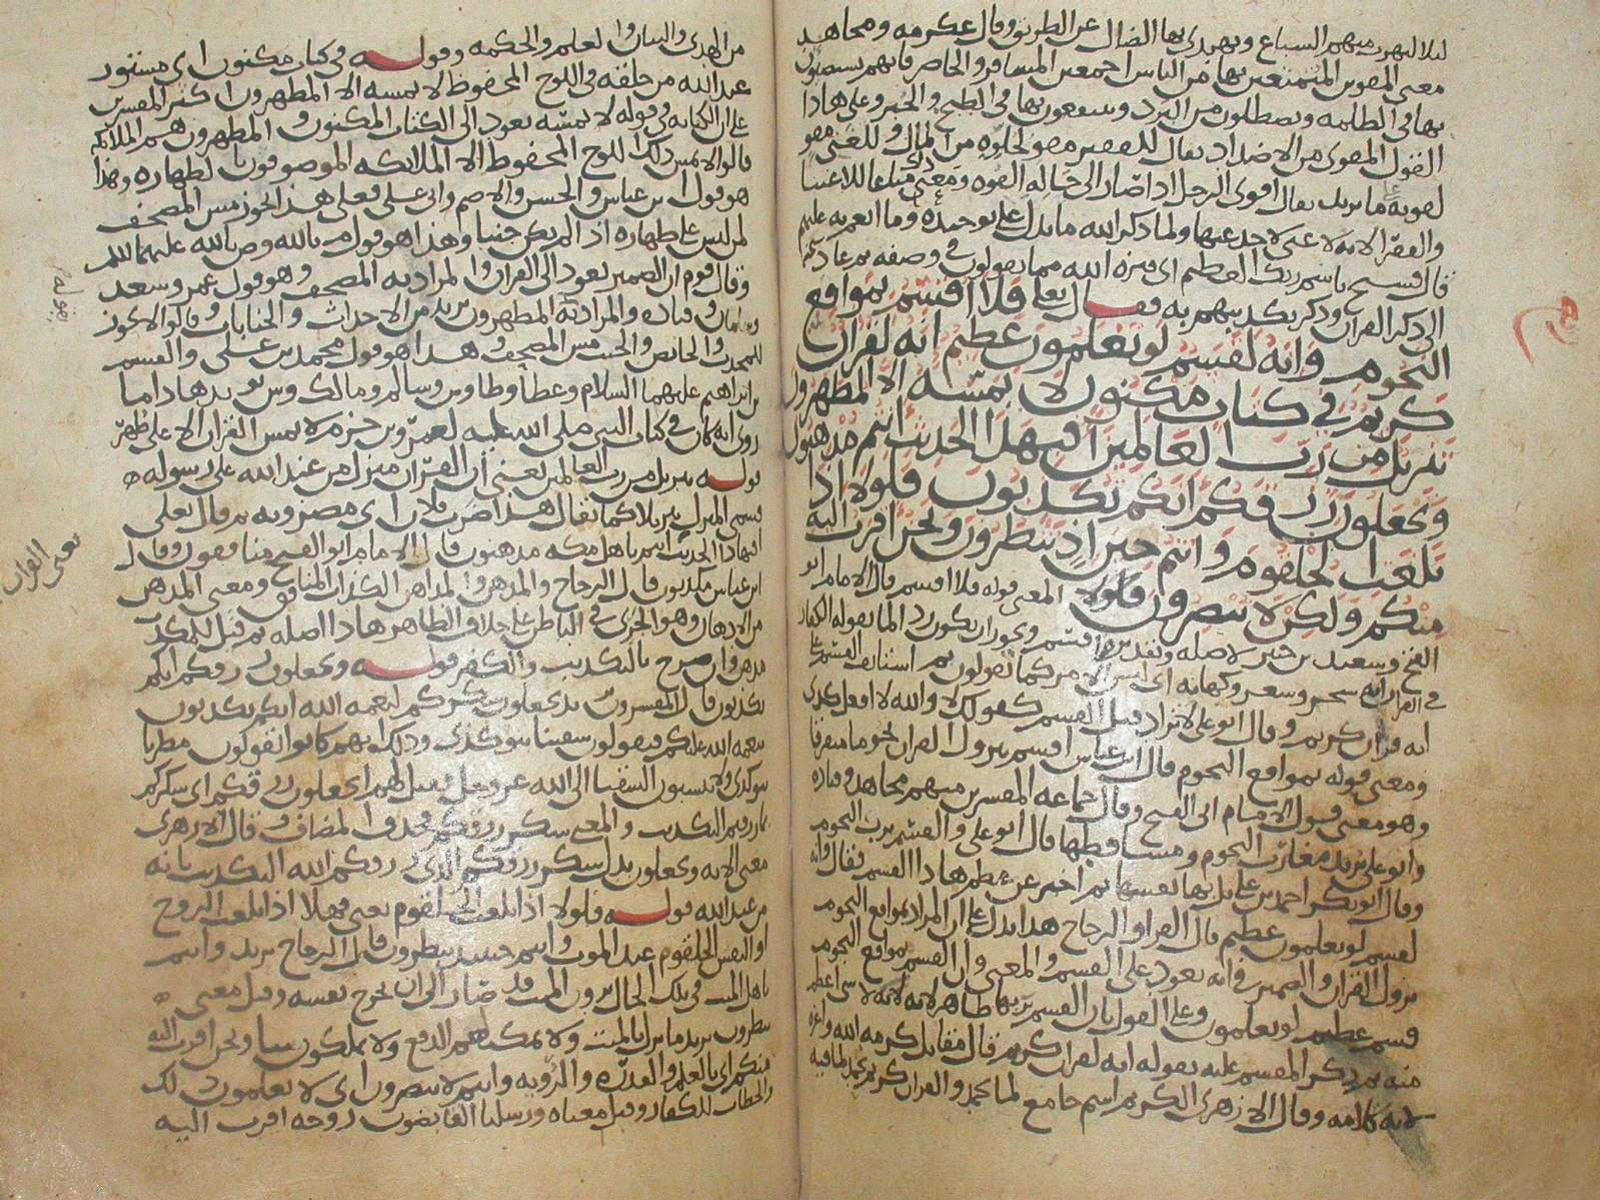 ليلا لتهرب منهم السباع ويهتدي بها الضال عن الطريق وقال عكرمه ومجاهد
معنى المقوين المتمتعين بها من الناس اجمعين المسافر والحاضر فانهم يستضيون
بها في الظلمه ويصطلون من البرد وينتفعون بها في الطبخ والخبز وعلى هاذا
القول المقوي من الاضداد يقال للفقير مقو لخلوه من المال وللغني مقو
لقوته على ما يريد يقال اقوى الرجل اذا صار الى حاله القوه ومعنى ذلك متاعا للاغنيا
والفقرا لانه لا غنى لاحد عنها ولما ذكر الله ما يدل على توحيده وما انعم به عليهم
قال فسبح باسم ربك العظيم اي نزه الله مما يقولون في وصفه ثم عاد
الى ذكر القران وذكر تكذيبهم به فقال تعالى فلا اقسم بمواقع
النجوم وانه لقسم لو تعلمون عظيم انه لقران
كريم في كتاب مكنون لا يمسه الا المطهرون
تنزيل من رب العالمين افبهذا الحديث انتم مدهنون
وتجعلون رزقكم انكم تكذبون فلولا اذا
بلغت الحلقوم وانتم حينئذ تنظرون ونحن اقرب اليه
منكم ولكن لا تبصرون فلولا المعنى قوله فلا اقسم قال الامام ابو
الفتح وسعيد بن جبير لا صله وتقديره اقسم ويجوز ان يكون رد الما يقوله الكفار
في القران انه سحر وشعر وكهانه اي ليس الامر كما تقولون ثم استانف القسم على
انه قران كريم وقال ابو علي لا تزاد قبل القسم كقولك لا والله لا افعل كذى
ومعنى قوله بمواقع النجوم قال ابن عباس اقسم بنزول القران نجوما متفرقا
وهو معنى قول الامام ابي الفتح وقال جماعه المفسرين منهم مجاهد وقتاده
وابو علي يريد مغارب النجوم ومساقطها قال ابو علي والقسم برب النجوم
وقال ابو بكر احمد بن علي بل بها نفسها ثم اخبر عن عظم هاذا القسم فقال وانه
لقسم لو تعلمون عظيم قال الفرا والزجاج هذا يدل على ان المراد بمواقع النجوم
نزول القران والضمير في انه يعود على القسم والمعنى وان القسم بمواقع النجوم
قسم عظيم لو تعلمون وعلى القول بان القسم بربها ظاهر لانه لا شي اعظم
منه ثم ذكر المقسم عليه بقوله انه لقران كريم قال مقاتل كرمه الله واعزه
لانه كلامه وقال الازهري الكريم اسم جامع لما يحمد والقران كريم يحمد لما فيه
من الهدى والبيان والعلم والحكمه وقوله في كتاب مكنون اي مستور
عند الله من خلقه في اللوح المحفوظ لا يمسه الا المطهرون اكثر المفسرين
على ان الكنايه في قوله لا يمسه تعود الى الكتاب المكنون و المطهرون هم الملائكه
قالوا لا يمس ذلك اللوح المحفوظ الا الملائكه الموصوفون بالطهاره وهذا
هو قول ابن عباس والحسن والاصم وابي علي فعلى هذا يجوز مس المصحف
لمن ليس على طهاره اذا لم يكن جنبا وهذا هو قول م بالله وص بالله عليهما السلم
وقال قوم ان الضمير يعود الى القران والمراد به المصحف وهو قول عمر وسعد
وسلمان و قتاده والمراد به المطهرون يريد من الاحداث والجنابات و قالوا لا يجوز
للمحدث والحائض والجنب مس المصحف و هذا هو قول محمد بن علي والقسم
بن ابراهيم عليهما السلام وعطا وطاوس وسالم ومالك وس يويد هاذا ما
روي انه كان في كتاب النبي صلى الله عليه لعمرو بن حزم لا يمس القران الا على طهر
قوله تنزيل من رب العالمين يعني ان القران منزل من عند الله على رسوله
فسمي المنزل تنزيلا كما يقال هذا ضرب فلان اي مضروبه ثم قال تعلى
افبهاذا الحديث انتم يا هل مكه مدهنون قال الامام ابو الفتح منافقون وقال
ابن عباس مكذبون قال الزجاج والمدهن والمداهن الكذاب المنافق ومعنى المدهن
من الادهان وهو الجري في الباطن على خلاف الظاهر هاذا اصله ثم قيل للمكذب
مدهن وان صرح بالتكذيب والكفر قوله وتجعلون رزقكم انكم
تكذبون قال المفسرون يريد تجعلون شكركم لنعمه الله انكم تكذبون
بنعمه الله عليكم فتقولون سقينا بنو كذى وذلك انهم كانوا يقولون مطرنا
بنو كذى ولا ينسبون السقيا الى الله عز وجل فقيل لهم اتجعلون رزقكم اي شكركم
بما رزقتم التكذيب و المعنى شكر رزقكم فحذف المضاف و قال الازهري
معنى الايه وتجعلون بدل شكر رزقكم الذي رزقكم الله التكذيب بانه
من عند الله قوله فلولا اذا بلغت الحلقوم يعنى فهلا اذا بلغت الروح
او النفس الحلقوم عند الموت وانتم حينئذ تنظرون قال الزجاج يريد وانتم
يا هل الميت في تلك الحال ترون الميت قد صار الى ان تخرج نفسه وقيل معنى
تنظرون يريد ما نزل بالميت ولا يمكنكم الدفع ولا تملكون شيا ونحن اقرب اليه
منكم اي بالعلم والقدره والرويه وانتم لا تبصرون اي لا تعلمون ذلك
والخطاب للكفار وقيل معناه ورسلنا القابضون روحه اقرب اليه
يعني القران